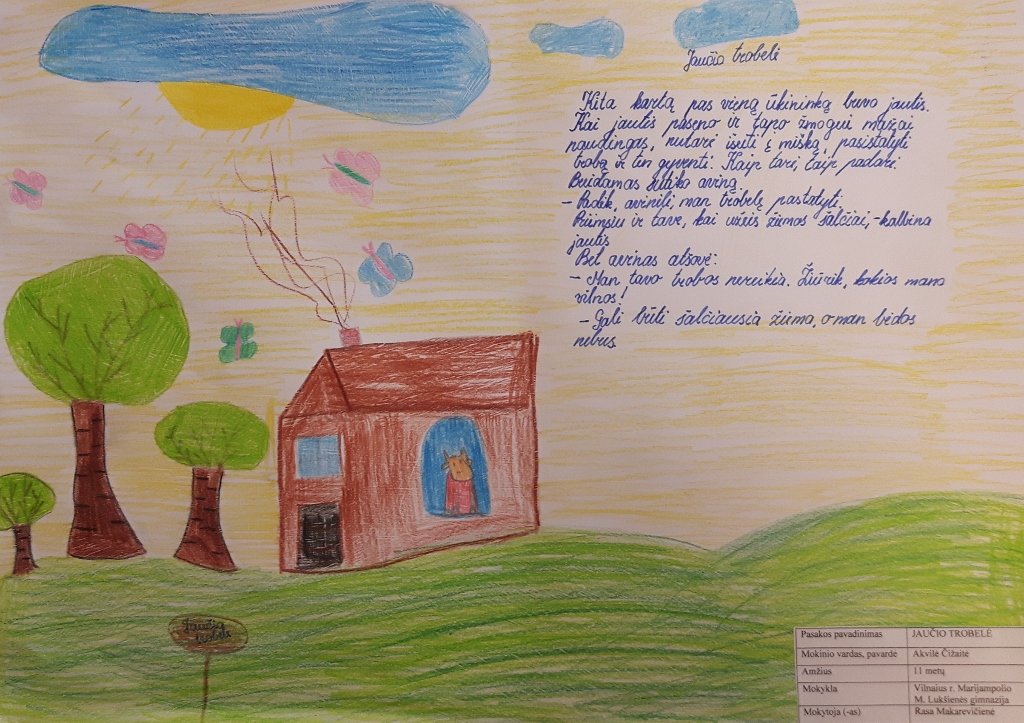 Jaučio trobelė
Kita kartą pas vieną ūkininką buvo jautis.
Kai jautis paseno ir tapo žmogui mažai
naudingas, nutarė išeiti į mišką, pasistatyti
trobą ir ten gyventi. Kaip tarė, taip padarė.
Beidamas sutiko aviną.
- Padėk, avinėli, man trobelę pastatyti.
Priimsiu ir tave, kai užeis žiemos šalčiai, - kalbina
jautis
Bet avinas atšovė:
- Man tavo trobos nereikia. Žiūrėk, kokios mano
vilnos!
- Gali būti šalčiausia žiema, o man bėdos
nebus
Jaučio
trobelė
Pasakos pavadinimas JAUČIO TROBELĖ
Mokinio vardas, pavardė Akvilė Čižaitė
Amžius 11 metų
Mokykla Vilniaus r. Marijampolio
M. Lukšienės gimnazija
Mokytoja (-as) Rasa Makarevičienė